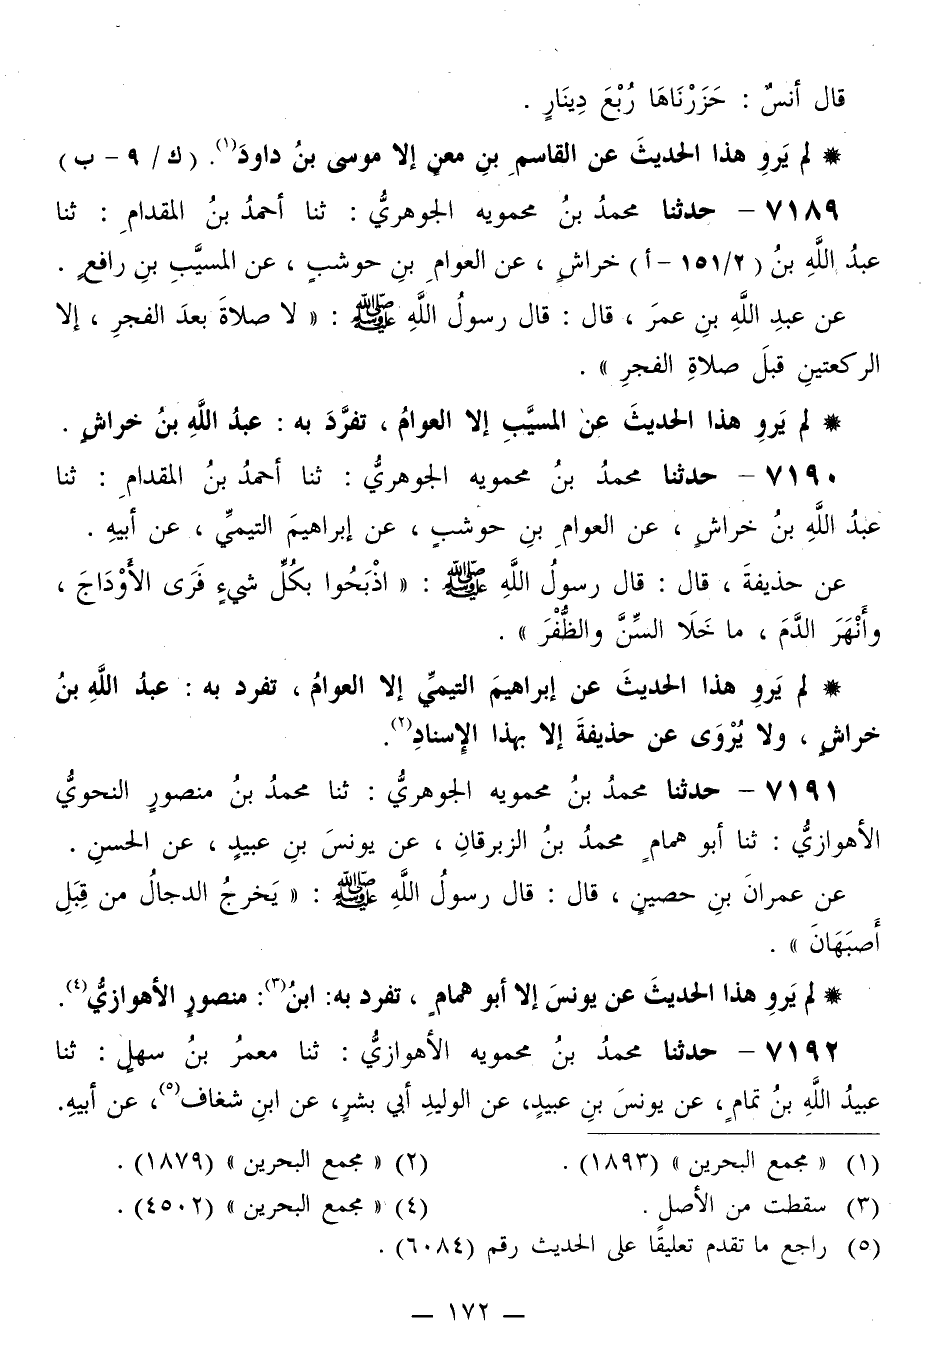 قال أنسٌ : حَزَرْنَاهَا رُبْعَ دِينَارٍ .
* لم يَروِ هذا الحديثَ عن القاسمِ بنِ معنٍ إلا موسى بنُ داودَ(١). ( ك / ٩ - ب )
٧١٨٩ - حدثنا محمدُ بنُ محمويه الجوهريُّ : ثنا أحمدُ بنُ المقدامِ : ثنا
عبدُ اللَّهِ بنُ ( ١٥١/٢ - أ ) خراشٍ ، عن العوامِ بنِ حوشبٍ ، عن المسيَّبِ بنِ رافعٍ .
عن عبدِ اللَّهِ بنِ عمرَ ، قال : قال رسولُ اللَّهِ ﷺ : « لا صلاةَ بعدَ الفجرِ ، إلا
الركعتينِ قبلَ صلاةِ الفجرِ » .
* لم يَروِ هذا الحديثَ عن المسيَّبِ إلا العوامُ ، تفرَّدَ به : عبدُ اللَّهِ بنُ خراشٍ .
٧١٩٠ - حدثنا محمدُ بنُ محمويه الجوهريُّ : ثنا أحمدُ بنُ المقدامِ : ثنا
عبدُ اللَّهِ بنُ خراشٍ ، عن العوامِ بنِ حوشبٍ ، عن إبراهيمَ التيميِّ ، عن أبيهِ .
عن حذيفةَ ، قال : قال رسولُ اللَّهِ ﷺ : « اذْبَحُوا بكُلِّ شيءٍ فَرَى الأَوْدَاجَ ،
وأَنْهَرَ الدَّمَ ، ما خَلَا السِّنَّ والظُّفْرَ » .
* لم يَروِ هذا الحديثَ عن إبراهيمَ التيميِّ إلا العوامُ ، تفرد به : عبدُ اللَّهِ بنُ
خراشٍ ، ولا يُرْوَى عن حذيفةَ إلا بهذا الإسنادِ(٢).
٧١٩١ - حدثنا محمدُ بنُ محمويه الجوهريُّ : ثنا محمدُ بنُ منصورٍ النحويُّ
الأهوازيُّ : ثنا أبو همامٍ محمدُ بنُ الزبرقانِ ، عن يونسَ بنِ عبيدٍ ، عن الحسنِ .
عن عمرانَ بنِ حصينٍ ، قال : قال رسولُ اللَّهِ ﷺ : « يَخرجُ الدجالُ من قِبَلِ
أَصبَهَانَ » .
* لم يَروِ هذا الحديثَ عن يونسَ إلا أبو همامٍ ، تفرد به: ابنُ(٣): منصورٍ الأهوازيُّ(٤).
٧١٩٢ - حدثنا محمدُ بنُ محمويه الأهوازيُّ : ثنا معمرُ بنُ سهلٍ : ثنا
عبيدُ اللَّهِ بنُ تمامٍ، عن يونسَ بنِ عبيدٍ، عن الوليدِ أبي بشرٍ، عن ابنِ شغاف(٥)، عن أبيهِ.
(١) « مجمع البحرين » (١٨٩٣) .
(٢) « مجمع البحرين » (١٨٧٩) .
(٣) سقطت من الأصلِ .
(٤) « مجمع البحرين » (٤٥٠٢) .
(٥) راجع ما تقدم تعليقًا على الحديث رقم (٦٠٨٤) .
— ١٧٢ —